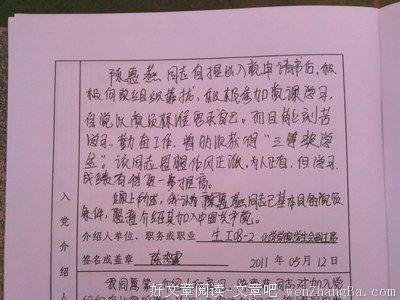 陈惠燕同志自提出入党申请书后，积
极向党组织靠拢，积极参加党课学习，
自觉以党员标准要求自己。而且能刻苦
学习，勤奋工作，曾两次获得“三等奖学
金”。该同志思想作风正派，为人正直，但学习
成绩有待进一步提高。
综上所述，我认为陈惠燕同志已基本具备党员
条件，愿意介绍其加入中国共产党。
入党介绍
介绍人单位、职务或职业 生工08-2 化学学院学生会副主席
签名或盖章 2011 年 05 月 12 日
好文章阅读·文章吧
wenzhangba.com